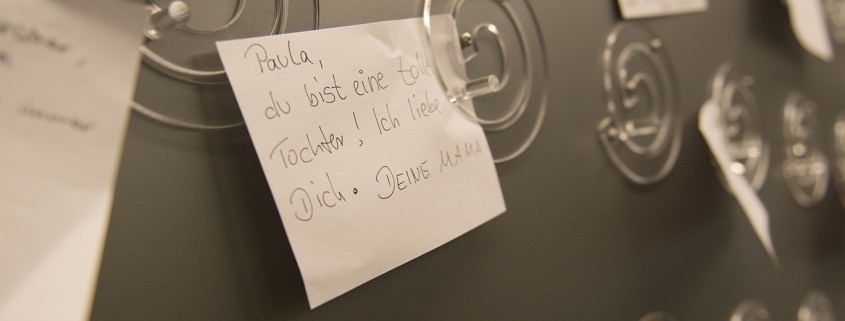 Paula,
du bist eine tolle
Tochter! Ich liebe
Dich. DEINE MAMA